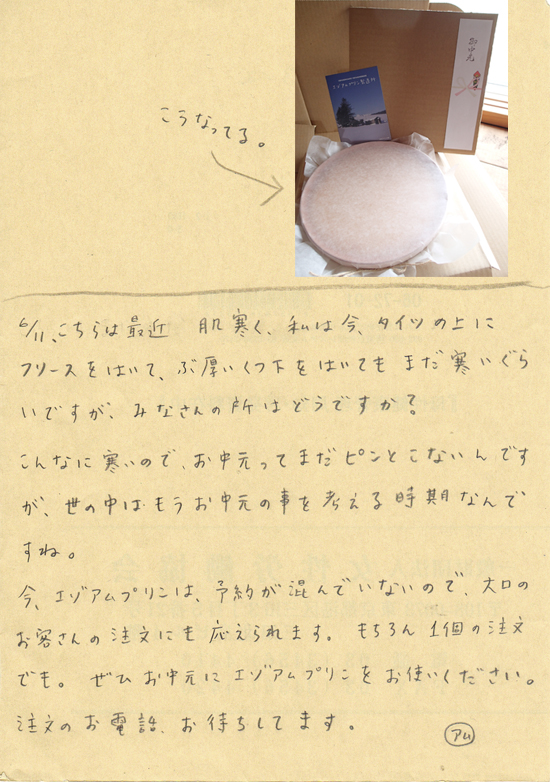 御中元
エゾアムプリン製造所
こうなってる。
6/11、こちらは最近 肌寒く、私は今、タイツの上に
フリースをはいて、ぶ厚いくつ下をはいてもまだ寒いぐら
いですが、みなさんの所はどうですか?
こんなに寒いので、お中元ってまだピンとこないんです
が、世の中はもうお中元の事を考える時期なんで
すね。
今、エゾアムプリンは、予約が混んでいないので、大口の
お客さんの注文にも応えられます。もちろん1個の注文
でも。ぜひお中元にエゾアムプリンをお使いください。
注文のお電話、お待ちしてます。
アム